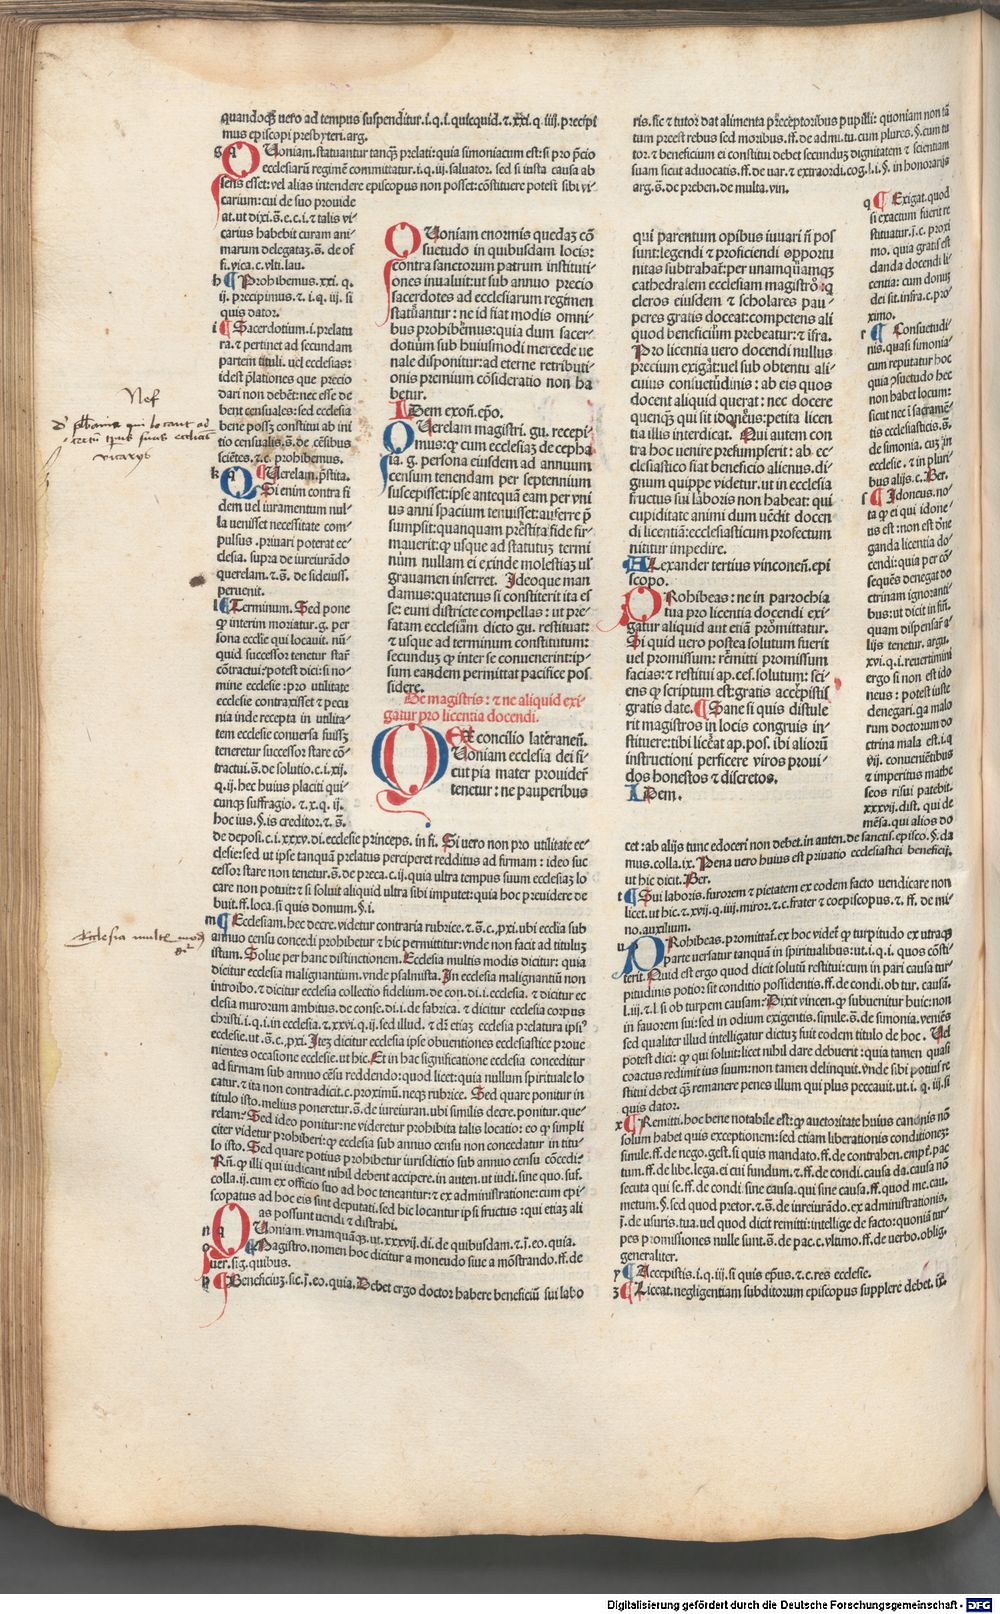 quandoqꝫ uero ad tempus suspenditur.i.q.i. quicquid.⁊.xxi.q.iiij.precipi
mus episcopi presbyteri.arg.
g q Uoniam.statuantur tanqꝫ prelati:quia simoniacum est:si pro p̄cio
ecclesiarū regimē committatur.i.q.iij.saluator. sed si iusta causa ab
sens esset:vel alias intendere episcopus non posset:cōstituere potest sibi vi-
carium:cui de suo prouide
at.ut dixi.s̄.e.c.i.⁊ talis vi-
carius habebit curam ani-
marum delegataꝫ.s̄. de of
fi.vica.c.vlti.lau.
h Prohibemus.xxi. q.
ij. precipimus.⁊.i.q.iij. si
quis dator.
i Sacerdotium.i.prelatu
ra.⁊ pertinet ad secundam
partem tituli. uel ecclesias:
idest p̄lationes que precio
dari non debēt:nec esse de
bent censuales:sed ecclesia
bene possꝫ constitui ab ini
tio censualis.s̄.de cēsibus
sciētes.⁊.c.prohibemus.
k q Uerelam.p̄stita.
Si enim contra fi
dem uel iuramentum nul-
la uenisset necessitate com-
pulsus.priuari poterat ec-
clesia. supra de iureiurādo
querelam.⁊.s̄. de fideiuss.
peruenit.
l Terminum. Sed pone
ꝙ interim moriatur.g. per
sona ecclie qui locauit. nū-
quid successor tenetur star̄
cōtractui:potest dici:si no-
mine ecclesie:pro utilitate
ecclesie contraxisset ⁊ pecu
nia inde recepta in utilita-
tem ecclesie conuersa fuissꝫ
teneretur successor stare cō-
tractui.s̄.de solutio.c.i.xij.
q.ij.hec huius placiti qui-
cunqꝫ suffragio. ⁊.x.q. ij.
hoc ius.§.is creditor.⁊.s̄.
de deposi.c.i.xxxv.di.ecclesie princeps. in fi. Si uero non pro utilitate ec-
clesie:sed ut ipse tanquā prelatus perciperet redditus ad firmam : ideo suc
cessor stare non tenetur.s̄.de preca.c.ij.quia ultra tempus suum ecclesiaꝫ lo
care non potuit:⁊ si soluit aliquid ultra sibi imputet:quia hoc preuidere de
buit.ff.loca.si quis domum.§.i.
m Ecclesiam.hec decre.videtur contraria rubrice.⁊.s̄.c.pxi.ubi ecclia sub
annuo censu concedi prohibetur ⁊ hic permittitur:vnde non facit ad tituluꝫ
istum. Solue per hanc distinctionem. Ecclesia multis modis dicitur: quia
dicitur ecclesia malignantium.vnde psalmista. In ecclesia malignantiū non
introibo.⁊ dicitur ecclesia collectio fidelium.de con.di.i.ecclesia. ⁊ dicitur ec
clesia murorum ambitus.de conse.di.i.de fabrica. ⁊ dicitur ecclesia corpus
christi.i.q.i.in ecclesia.⁊.xxvi.q.ij.sed illud. ⁊ dr̄ etiaꝫ ecclesia prelatura ipsiꝰ
ecclesie.ut.s̄.c.pxi. Iteꝫ dicitur ecclesia ipse obuentiones ecclesiastice proue
nientes occasione ecclesie.ut hic. Et in hac significatione ecclesia conceditur
ad firmam sub annuo cēsu reddendo:quod licet:quia nullum spirituale lo
catur.⁊ ita non contradicit.c.proximū.neqꝫ rubrice. Sed quare ponitur in
titulo isto.melius poneretur.s̄.de iureiuran.ubi similis decre.ponitur.que-
relam. Sed ideo ponitur:ne videretur prohibita talis locatio: eo ꝙ simpli
citer videtur prohiberi:ꝙ ecclesia sub annuo censu non concedatur in titu-
lo isto. Sed quare potius prohibetur iurisdictio sub annuo censu cōcedi:
Rn̄. ꝙ illi qui iudicant nihil debent accipere.in auten.ut iudi.sine quo.suf.
colla.ij.cum ex officio suo ad hoc teneantur:⁊ ex administratione:cum epi-
scopatus ad hoc eis sint deputati.sed hic locantur ipsi fructus :qui etiaꝫ ali
as possunt uendi ⁊ distrahi.
n q Uoniam.vnamquāqꝫ.ut.xxxvij.di.de quibusdam.⁊.j̄.eo.quia.
o Magistro.nomen hoc dicitur a monendo siue a mōstrando.ff.de
uer.sig.quibus.
p Beneficiuꝫ.sic.j̄.eo.quia. Debet ergo doctor habere beneficiū sui labo
Uoniam enormis quedaꝫ cō
suetudo in quibusdam locis:
contra sanctorum patrum instituti-
ones inualuit:ut sub annuo precio
sacerdotes ad ecclesiarum regimen
statuantur: ne id fiat modis omni-
bus prohibemus:quia dum sacer-
dotium sub huiusmodi mercede ue
nale disponitur:ad eterne retributi-
onis premium cōsideratio non ha
betur.
IDem exoñ.ep̄o.
QUerelam magistri. gu. recepi-
mus:ꝙ cum ecclesiaꝫ de cepha
la. g. persona eiusdem ad annuum
censum tenendam per septennium
suscepisset:ipse antequā eam per vni
us anni spacium tenuisset:auferre p̄
sumpsit:quanquam prestita fide fir-
mauerit:ꝙ usqꝫ ad statutuꝫ termi
num nullam ei exinde molestiaꝫ ul'
grauamen inferret. Ideoque man
damus:quatenus si constiterit ita es
se: eum districte compellas : ut pre-
fatam ecclesiam dicto gu. restituat:
⁊ usque ad terminum constitutum:
secunduꝫ ꝙ inter se conuenerint:ip-
sum eandem permittat pacifice pos
sidere.
De magistris: ⁊ ne aliquid exi-
gatur pro licentia docendi.
Ex concilio lateranen̄.
QUoniam ecclesia dei si
cut pia mater prouider̄
tenetur : ne pauperibus
ris.sic ⁊ tutor dat alimenta p̄ceptoribus pupilli: quoniam non tā
tum preest rebus sed moribus.ff.de admi.tu.cum plures.§.cum tu
tor.⁊ beneficium ei constitui debet secunduꝫ dignitatem ⁊ scientiam
suam sicut aduocatis.ff.de uar.⁊ extraordi.cog.l.i.§. in honorarijs
arg.s̄.de preben.de multa.vin.
qui parentum opibus iuuari n̄ pos
sunt:legendi ⁊ proficiendi oppōrtu
nitas subtrahat:per unamquāmqꝫ
cathedralem ecclesiam magistro:q
cleros eiusdem ⁊ scholares pau-
peres gratis doceat:competens ali
quod beneficium prebeatur:⁊ ifra.
Pro licentia uero docendi nullus
precium exigat:uel sub obtentu ali-
cuius consuetudinis : ab eis quos
docent aliquid querat: nec docere
quenqꝫ qui sit idoneus:petita licen
tia illis interdicat. Qui autem con
tra hoc uenire presumpserit: ab ec-
clesiastico fiat beneficio alienus.di-
gnum quippe videtur.ut in ecclesia
fructus sui laboris non habeat: qui
cupiditate animi dum uēdit docen
di licentiā:ecclesiasticum profectum
nititur impedire.
ALexander tertius vinconen̄.epi
scopo.
PRohibeas: ne in parrochia
tua pro licentia docendi exi-
gatur aliquid aut etiā promittatur.
Si quid uero postea solutum fuerit
uel promissum: remitti promissum
facias:⁊ restitui ap.ces.solutum: sci-
ens ꝙ scriptum est:gratis accepistis
gratis date. Sane si quis distule
rit magistros in locis congruis in-
stituere:tibi liceat ap.pos. ibi aliorū
instructioni perficere viros proui-
dos honestos ⁊ discretos.
IDem.
q Exigat.quod
si exactum fuerit re
stituatur.i.c. proxi
mo. quia gratis est
danda docendi li-
centia: cum donuꝫ
dei sit.infra.c.pro
ximo.
r Consuetudi
nis.quasi simonia-
cum reputatur hoc
quia ↄsuetudo hec
non habet locum:
sicut nec i sacramē-
tis ecclesiasticis.s̄.
de simonia. cuꝫ in
ecclesie.⁊ in pluri-
bus alijs.c. Ber.
s Idoneus.no-
ta ꝙ ei qui idone-
us est:non est dene
ganda licentia do-
cendi:quia per cō-
sequēs denegat do
ctrinam ignoranti-
bus:ut dicit in fin̄.
quam dispensar̄ a-
lijs tenetur. argu.
xvi.q.i.reuertimini
ergo si non est ido
neus : potest iuste
denegari.qa malo
rum doctorum do
ctrina mala est.i.q
vij. conuenientibus
⁊ imperitus mathe
seos risui patebit.
xxxvij.dist. qui de
mēsa.qui alios do
cet:ab alijs tunc edoceri non debet.in auten.de sanctis.episco.§.da
mus.colla.ix. Pena vero huius est priuatio ecclesiastici beneficij.
ut hic dicit. Ber.
t Sui laboris.furorem ⁊ pietatem ex eodem facto uendicare non
licet.ut hic.⁊.xvij.q.iiij.miror.⁊.c.frater ⁊ coepiscopus.⁊. ff. de mi-
no.auxilium.
u PRohibeas.promittat.ex hoc videt ꝙ turpitudo ex utraqꝫ
parte uersatur tanquā in spiritualibus:ut.i.q.i. quos cōsti-
terit. Quid est ergo quod dicit solutū restitui:cum in pari causa tur-
pitudinis potior sit conditio possidentis.ff.de condi.ob tur. causā.
l.iij.⁊.l si ob turpem causam: Dixit vincen.ꝙ subuenitur huic:non
in fauorem sui:sed in odium exigentis.simile.s̄.de simonia.veniēs
sed qualiter illud intelligatur dictuꝫ fuit eodem titulo de hoc. Uel
potest dici: ꝙ qui soluit:licet nihil dare debuerit :quia tamen quasi
coactus redimit ius suum:non tamen delinquit.vnde sibi potius re
stitui debet qꝫ remanere penes illum qui plus peccauit.ut.i. q. iij.si
quis dator.
x Remitti.hoc bene notabile est:ꝙ auctoritate huius canonis nō
solum habet quis exceptionem:sed etiam liberationis conditioneꝫ:
simile.ff.de nego.gest.si quis mandato.ff.de contrahen.empt.pac
tum.ff.de libe.lega.ei cui fundum.⁊.ff.de condi.causa da.causa nō
secuta qui se.ff.de condi.sine causa.qui sine causa.ff.quod me.cau.
metum.§.sed quod pretor.⁊.s̄.de iureiurādo.ex administrationis.
j̄.de usuris.tua.uel quod dicit remitti:intellige de facto:quoniā tur-
pes promissiones nulle sunt.s̄.de pac.c.vltimo.ff.de uerbo.oblig.
generaliter.
y Accepistis.i.q.iij.si quis ep̄us.⁊.c.res ecclesie.
z Liceat.negligentiam subditorum episcopus supplere debet.
Digitalisierung gefördert durch die Deutsche Forschungsgemeinschaft - DFG